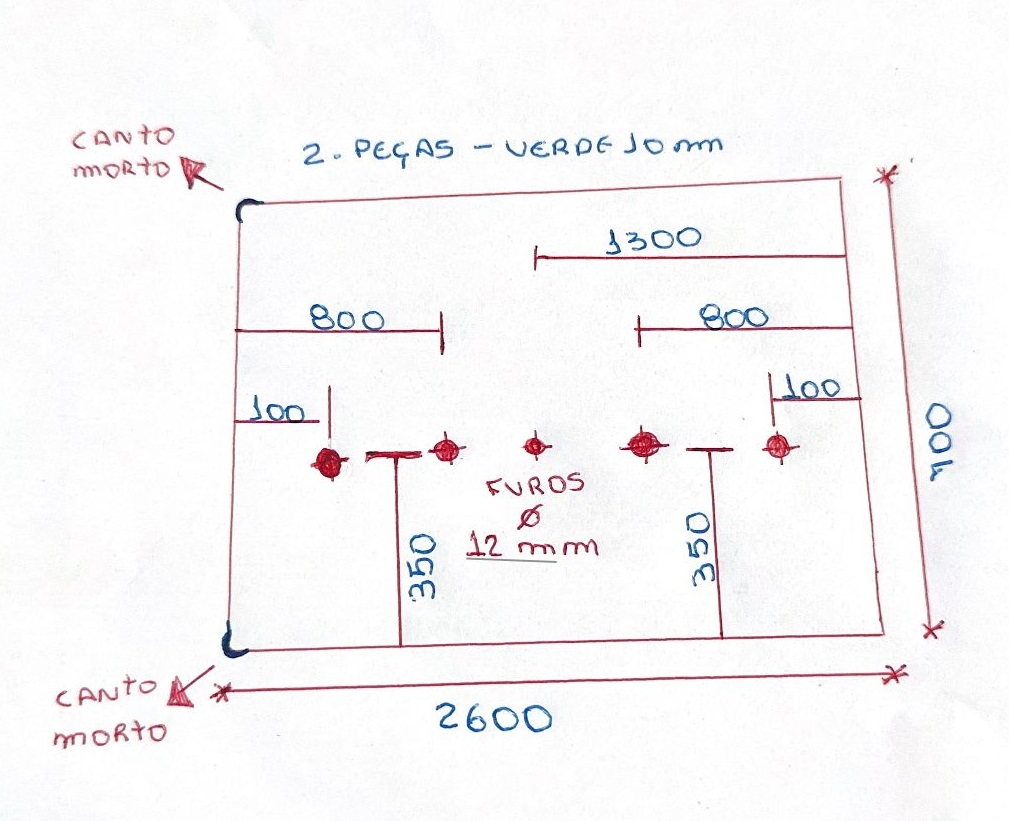 CANTO
MORTO
2. PEÇAS - VERDE 10 mm
1300
800
800
100
100
400
FUROS
Ø
12 mm
350
350
CANTO
MORTO
2600